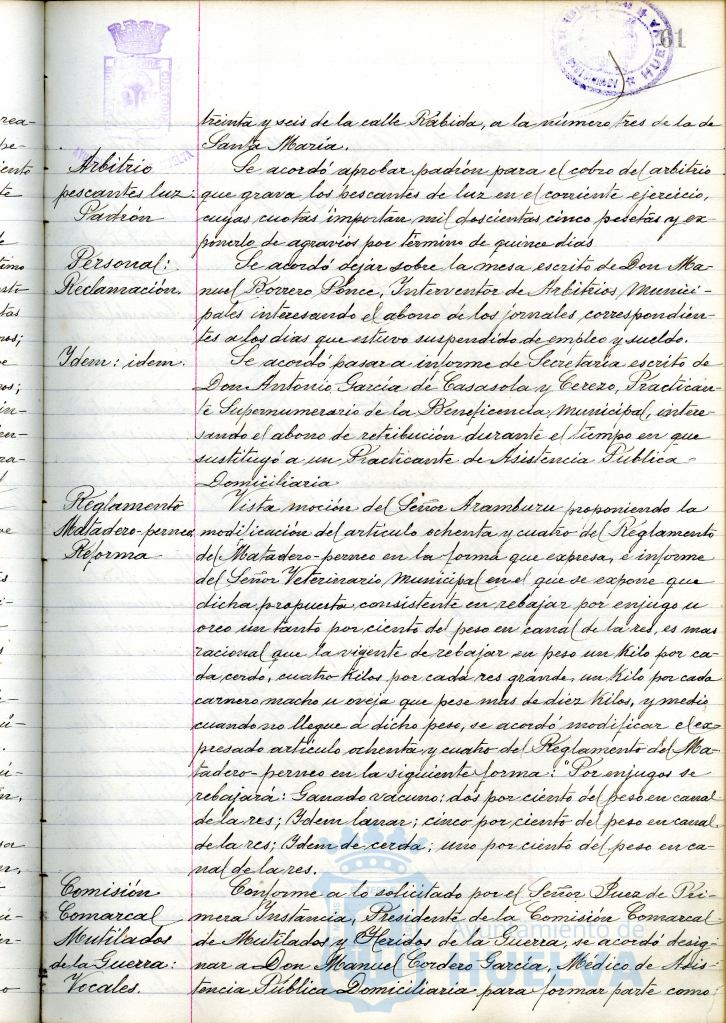 61
HUELVA
treinta y seis de la calle Rábida, a la número tres de la de
Santa María.
Arbitrio
pescantes luz:
Padrón
Se acordó aprobar padrón para el cobro del arbitrio
que grava los pescantes de luz en el corriente ejercicio,
cuyas cuotas importan mil doscientas cinco pesetas y ex-
ponerlo de agravios por término de quince dias
Personal:
Reclamación.
Se acordó dejar sobre la mesa escrito de Don Ma-
nuel Borrero Ponce, Interventor de Arbitrios Munici-
pales interesando el abono de los jornales, correspondien-
tes a los dias que estuvo suspendido de empleo y sueldo.
Idem: idem.
Se acordó pasar a informe de Secretaría escrito de
Don Antonio García de Casasola y Cerezo, Practican-
te Supernumerario de la Beneficencia Municipal, intere-
sando el abono de retribución durante el tiempo en que
sustituyó a un Practicante de Asistencia Pública
Domiciliaria
Reglamento
Matadero-perneo
Reforma
Vista moción del Señor Aramburu proponiendo la
modificación del artículo ochenta y cuatro del Reglamento
de Matadero-perneo en la forma que expresa, e informe
del Señor Veterinario Municipal en el que se expone que
dicha propuesta, consistente en rebajar por enjugo u
oreo un tanto por ciento del peso en canal de la res, es mas
racional que la vigente de rebajar en peso un Kilo por ca-
da cerdo, cuatro Kilos por cada res grande, un Kilo por cada
carnero macho u oveja que pese mas de diez Kilos, y medio
cuando no llegue a dicho peso, se acordó modificar el ex-
presado artículo ochenta y cuatro del Reglamento del Ma-
tadero-perneo en la siguiente forma: "Por enjugos se
rebajará: Ganado vacuno; dos por ciento del peso en canal
de la res; Idem lanar; cinco por ciento del peso en canal
de la res; Idem de cerda; uno por ciento del peso en ca-
nal de la res.
Comisión
Comarcal
Mutilados
de la Guerra:
Vocales.
Conforme a lo solicitado por el Señor Juez de Pri-
mera Instancia, Presidente de la Comisión Comarcal
de Mutilados y Heridos de la Guerra, se acordó desig-
nar a Don Manuel Cordero García, Médico de Asis-
tencia Pública Domiciliaria para formar parte como
Ayuntamiento de
HUELVA